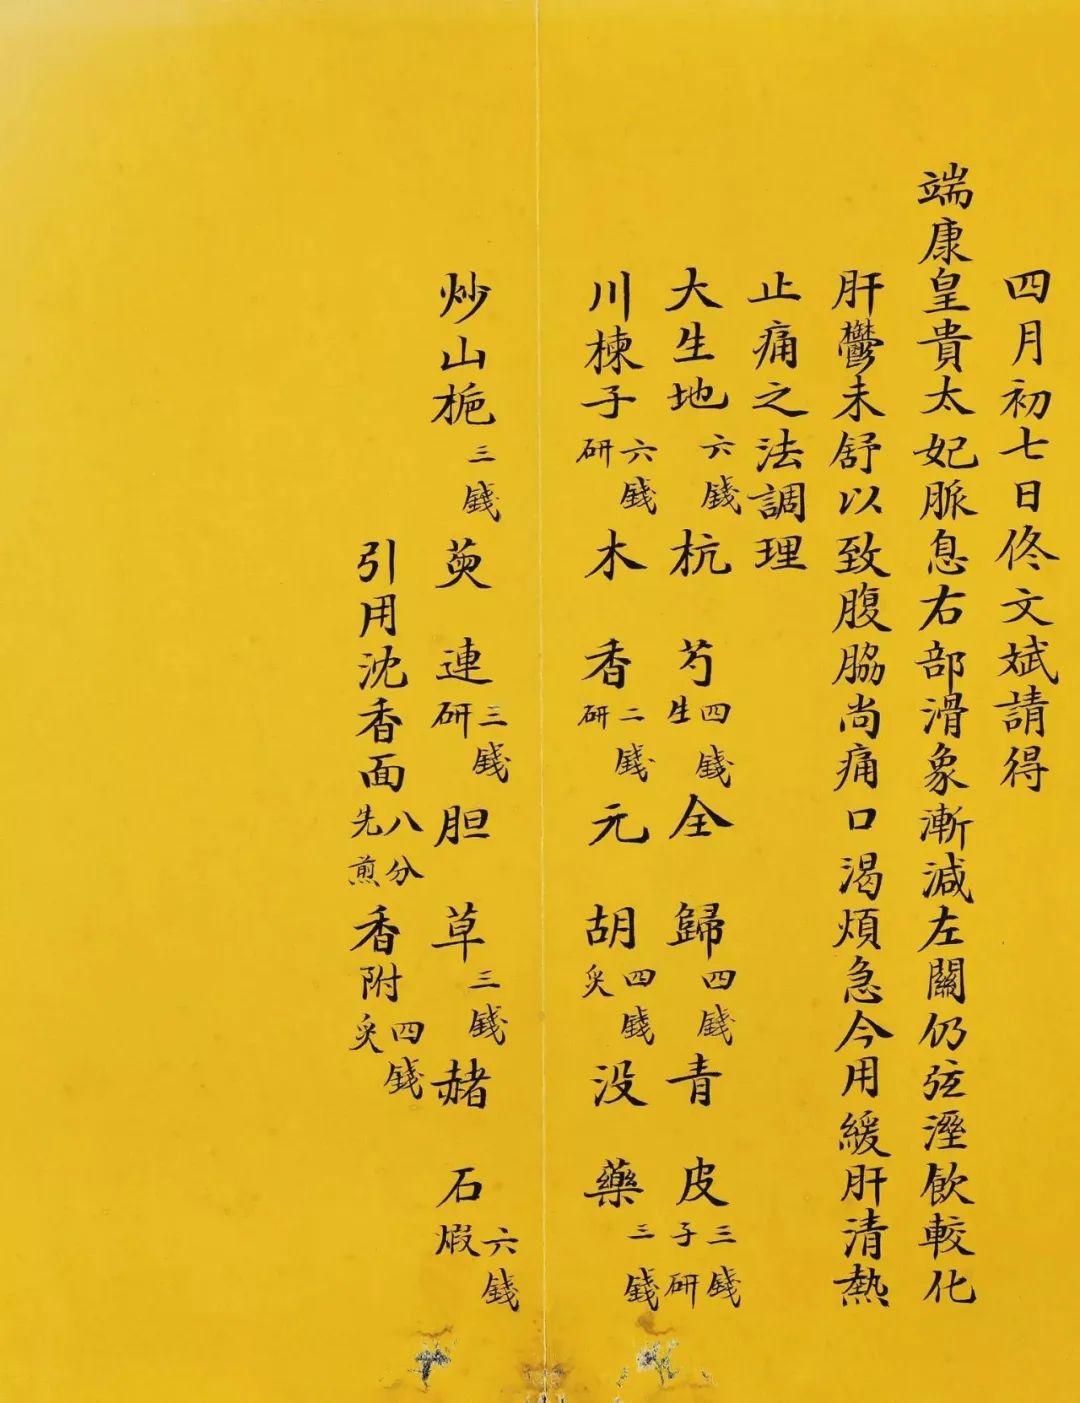 四月初七日佟文斌請得
端康皇貴太妃脈息右部滑象漸減左關仍弦溼飲較化
肝鬱未舒以致腹脇尚痛口渴煩急今用緩肝清熱
止痛之法調理
大生地六錢 杭芍四錢生 全歸四錢 青皮三錢子研
川楝子六錢研 木香二錢研 元胡四錢炙 没藥三錢
炒山梔三錢 萸連三錢研 胆草三錢 赭石六錢煅
引用沈香面八分先煎 香附四錢炙